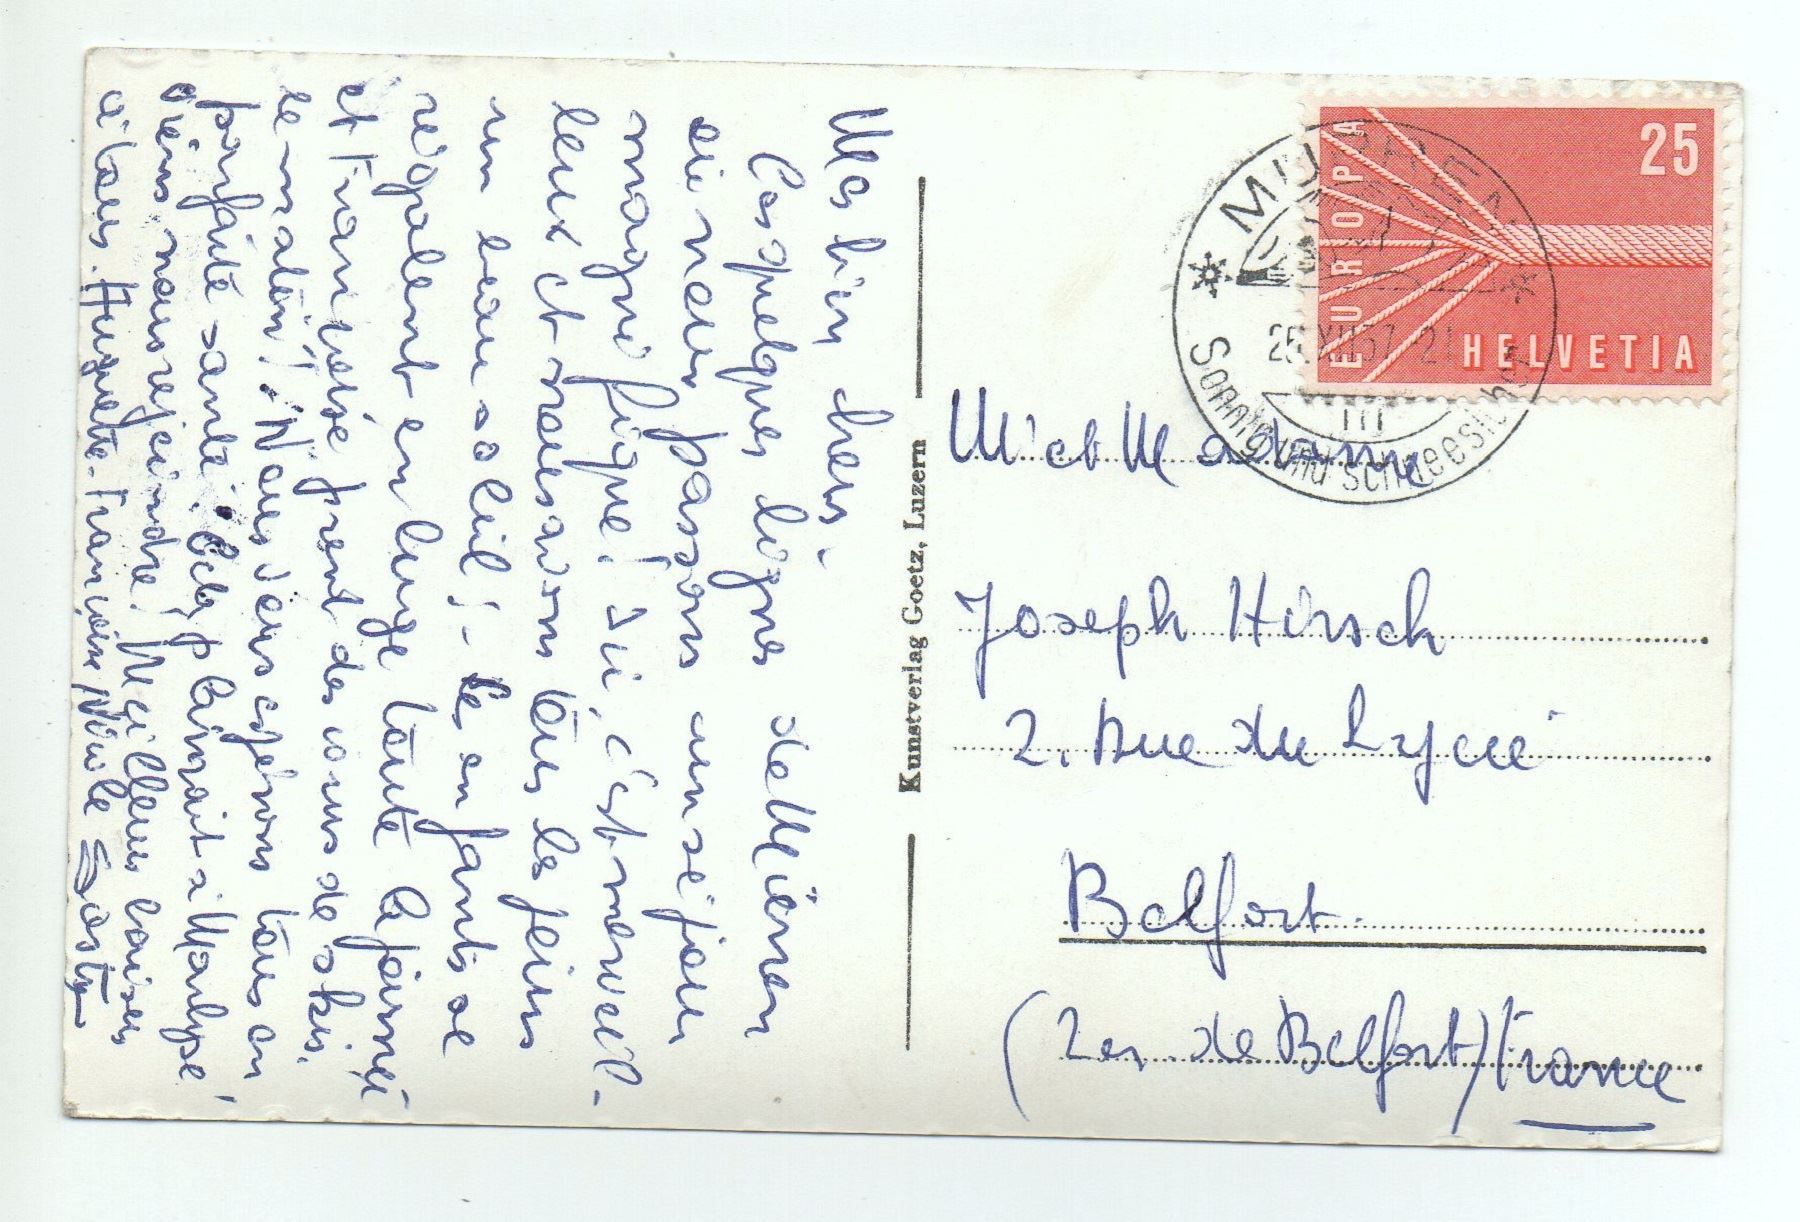 Mes bien chers.
Ces quelques lignes de Mürren
où nous passons un séjour
magnifique! Ici c'est merveil-
leux et nous avons tous les jours
un beau soleil! - Les enfants se
régalent en luge toute la journée
et Françoise prend des cours de skis
le matin! Nous vous espérons tous en
parfaite santé.
nous rejoindre! Meilleurs baisers
à tous. Huguette - Françoise, Nicole
Kunstverlag Goetz, Luzern
EUROPA
25
HELVETIA
MÜRREN
25.XII.57 - 21
Sonnig und schneesicher
M. et Madame
Joseph Hirsch
2. Rue du Lycée
Belfort.
(Ter. de Belfort) France